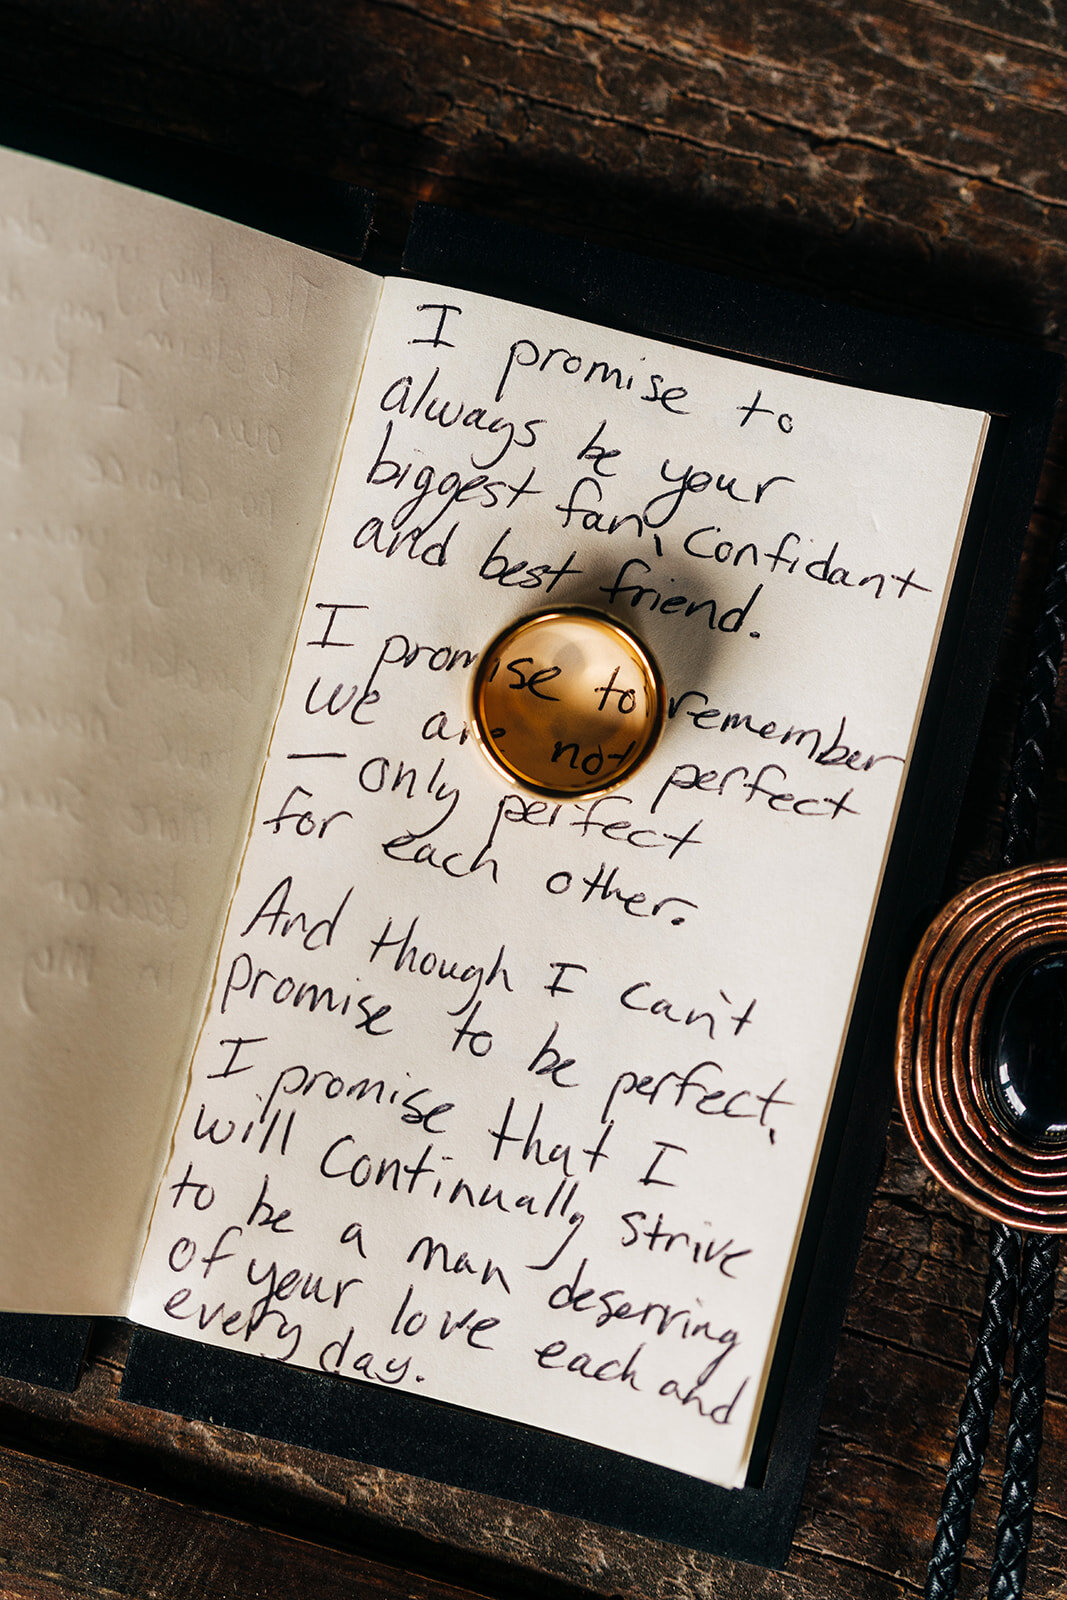 I promise to
always be your
biggest fan, confidant
and best friend.
I promise to remember
we are not perfect
— only perfect
for each other.
And though I can't
promise to be perfect,
I promise that I
will continually strive
to be a man deserving
of your love each and
every day.